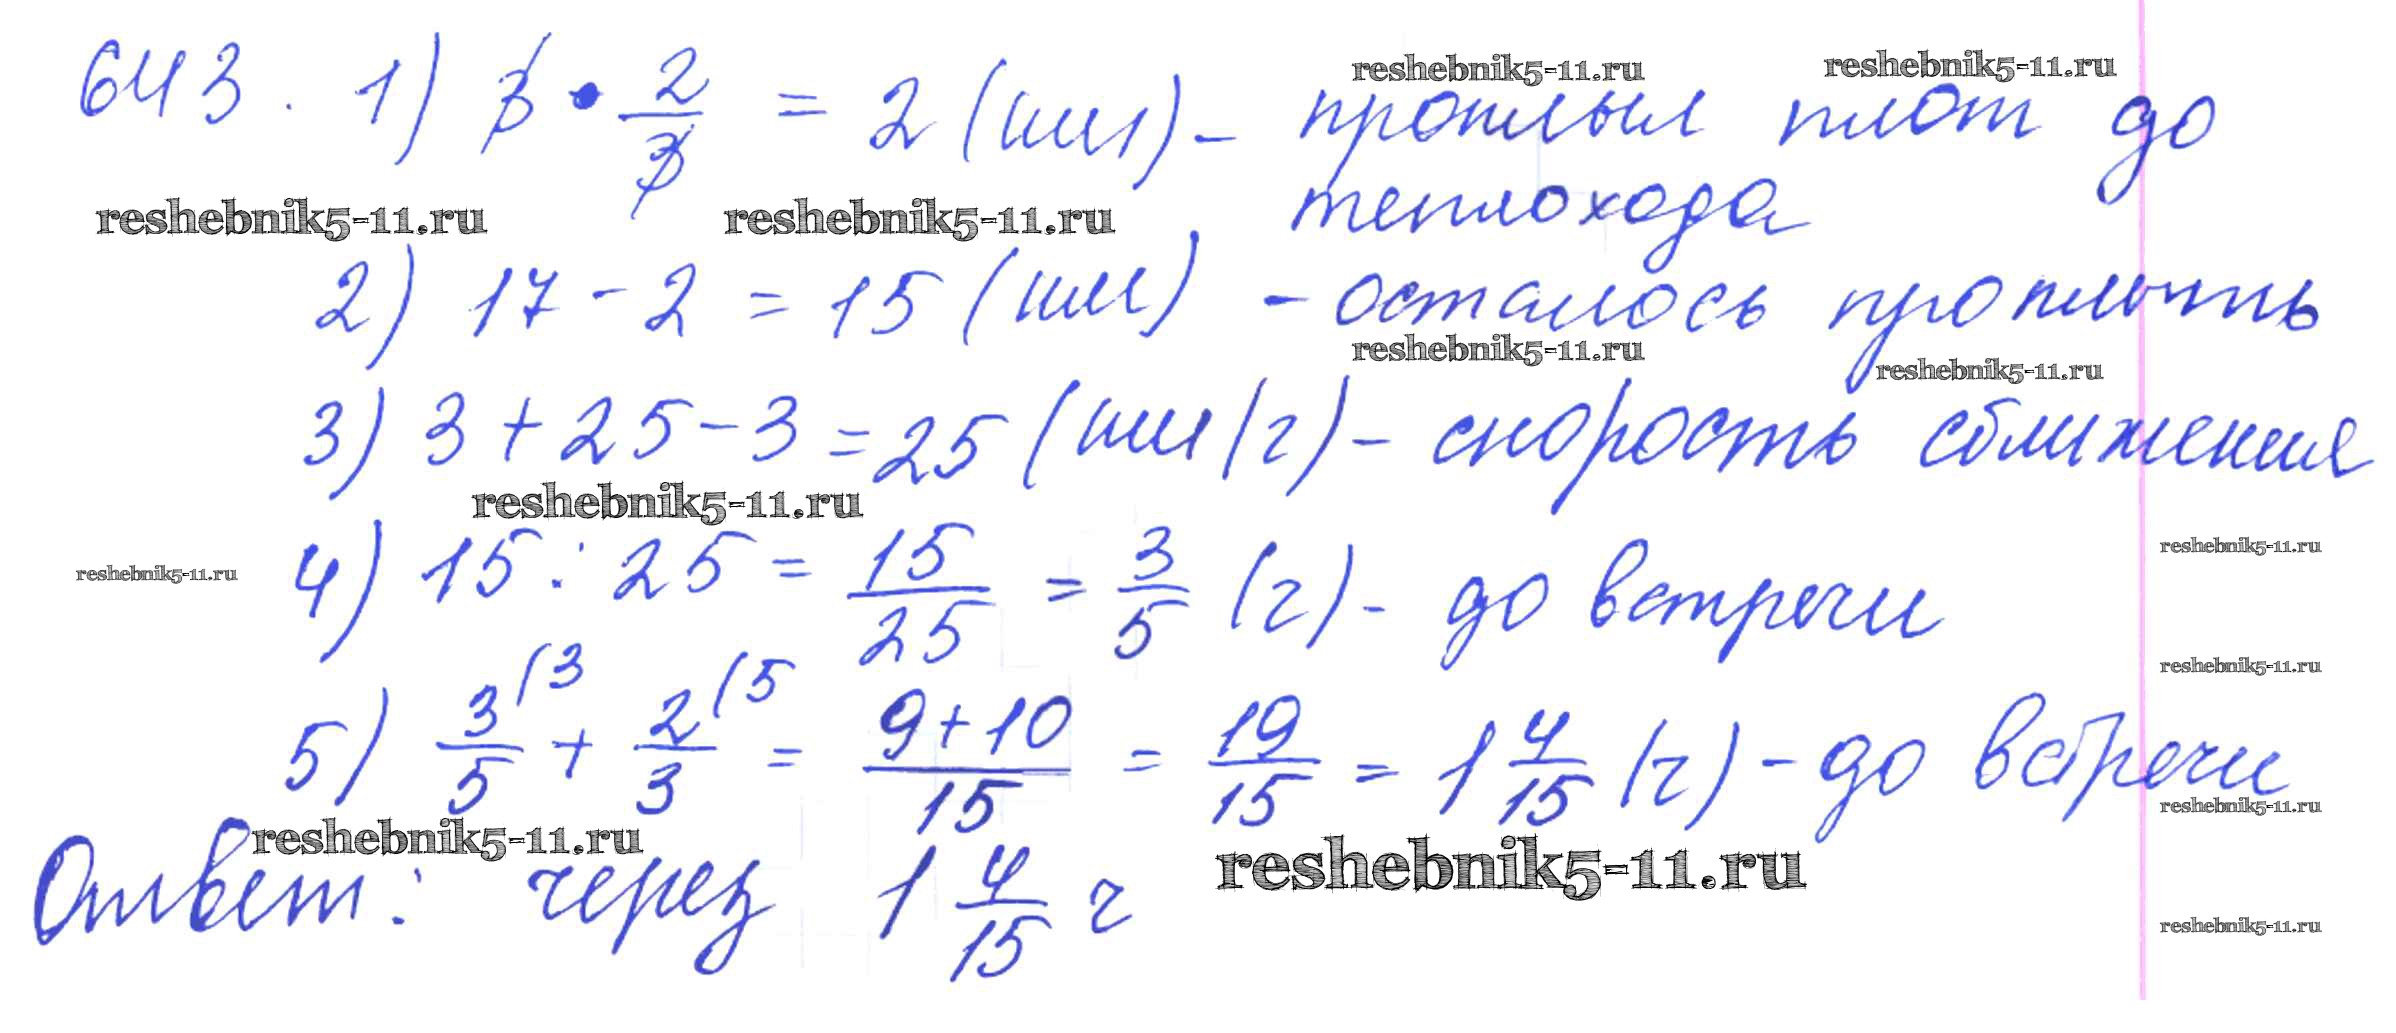 643. 1) 3 • 2/3 = 2 (км) - проплыл плот до
reshebnik5-11.ru reshebnik5-11.ru
теплохода
reshebnik5-11.ru reshebnik5-11.ru
2) 17 - 2 = 15 (км) - осталось проплыть
reshebnik5-11.ru reshebnik5-11.ru
3) 3 + 25 - 3 = 25 (км/г) - скорость сближения
reshebnik5-11.ru
4) 15 : 25 = 15/25 = 3/5 (г) - до встречи
reshebnik5-11.ru reshebnik5-11.ru
reshebnik5-11.ru
5) 3/5 (3 + 2/3 (5 = 9+10/15 = 19/15 = 1 4/15 (г) - до встречи
reshebnik5-11.ru
reshebnik5-11.ru reshebnik5-11.ru
Ответ: через 1 4/15 г
reshebnik5-11.ru